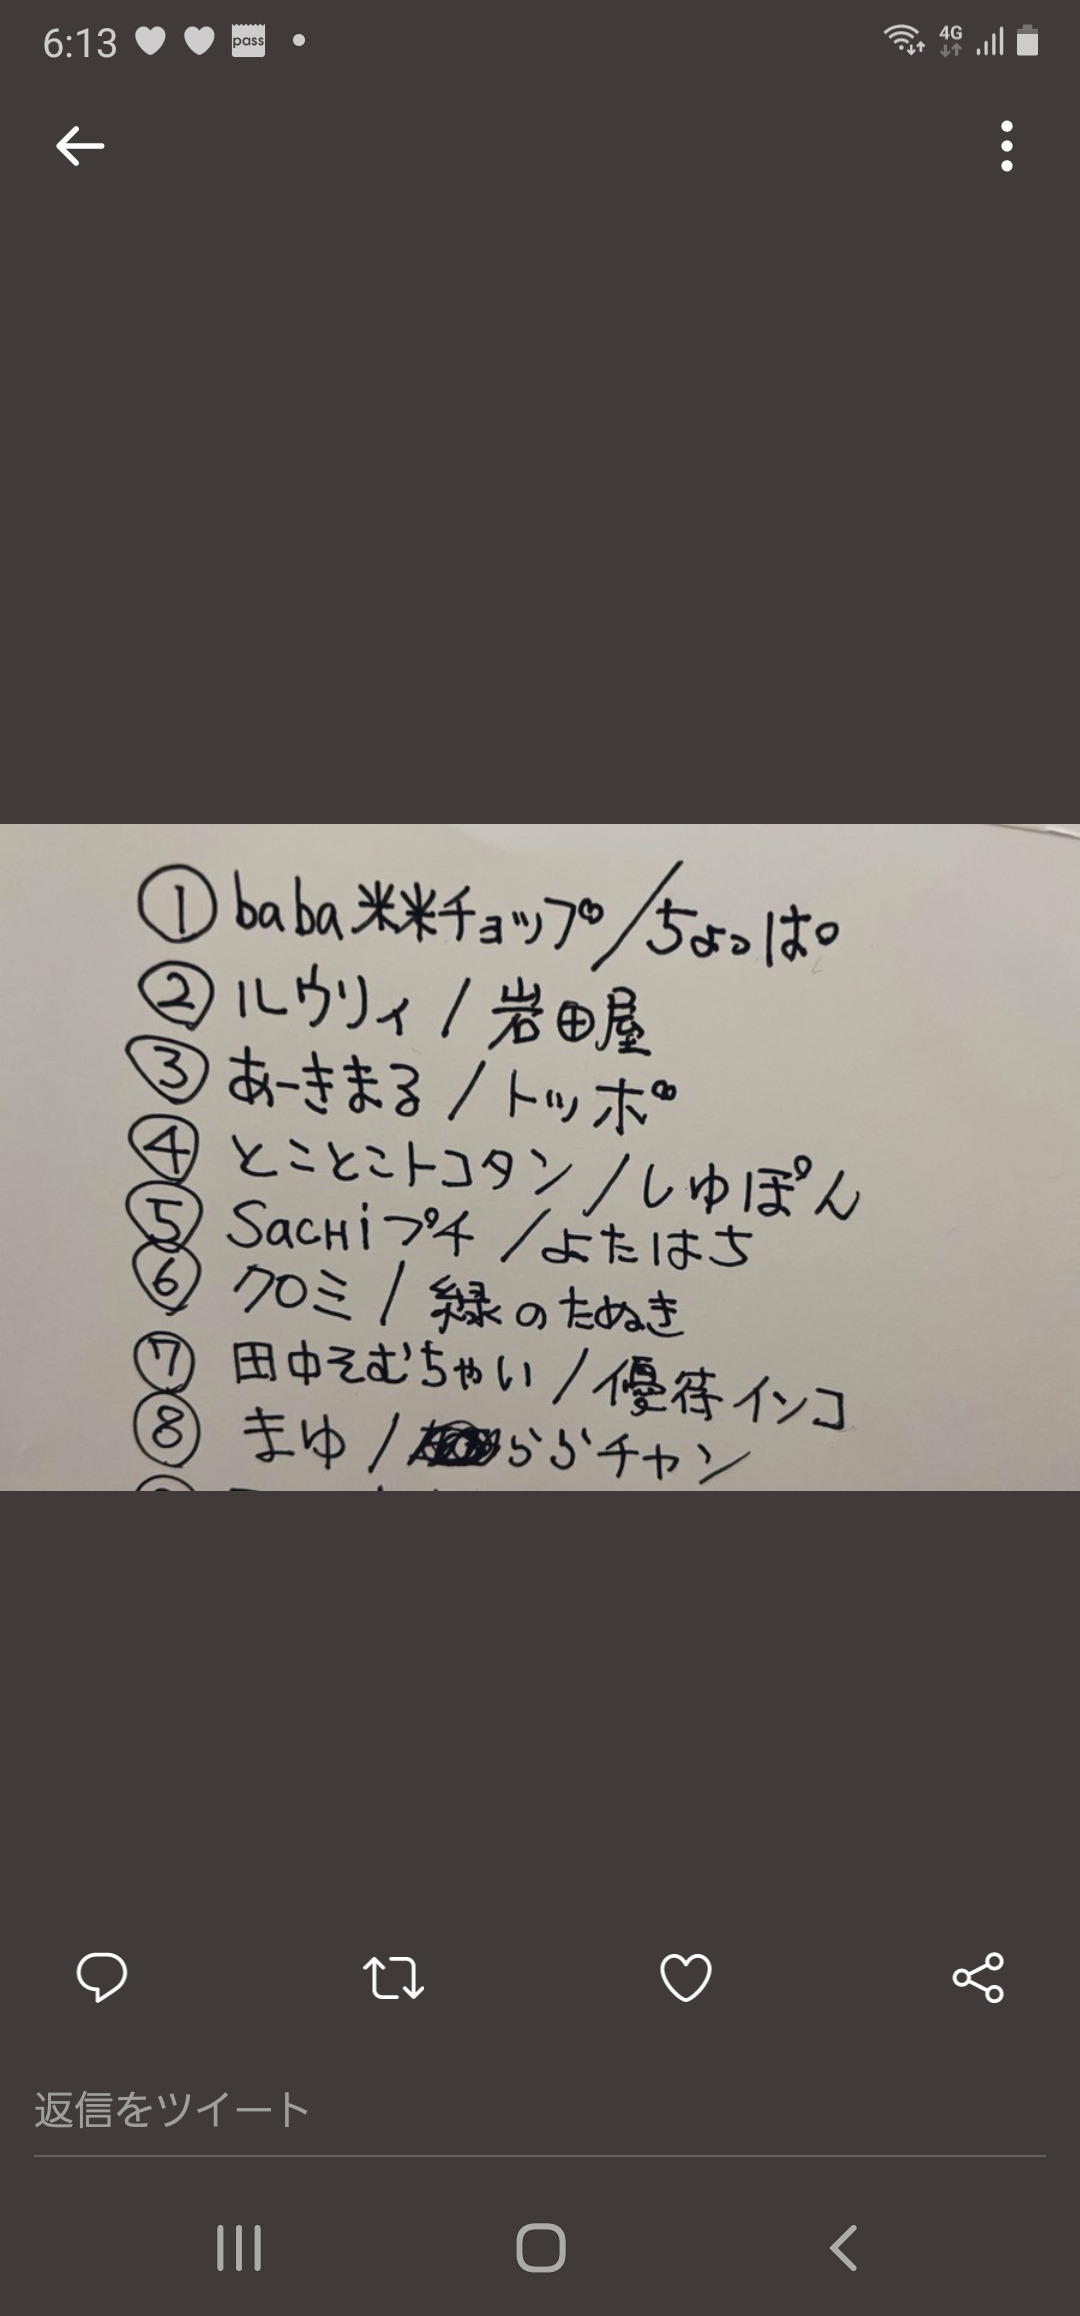 6:13 pass 4G
① baba米米チョップ/ちょっぱ
② ルウリィ/岩田屋
③ あーきまる/トッポ
④ とことこトコタン/しゅぽん
⑤ SACHiプチ/よたはち
⑥ クロミ/緑のたぬき
⑦ 田中そむちゃい/優待インコ
⑧ まゆ/ららチャン
返信をツイート